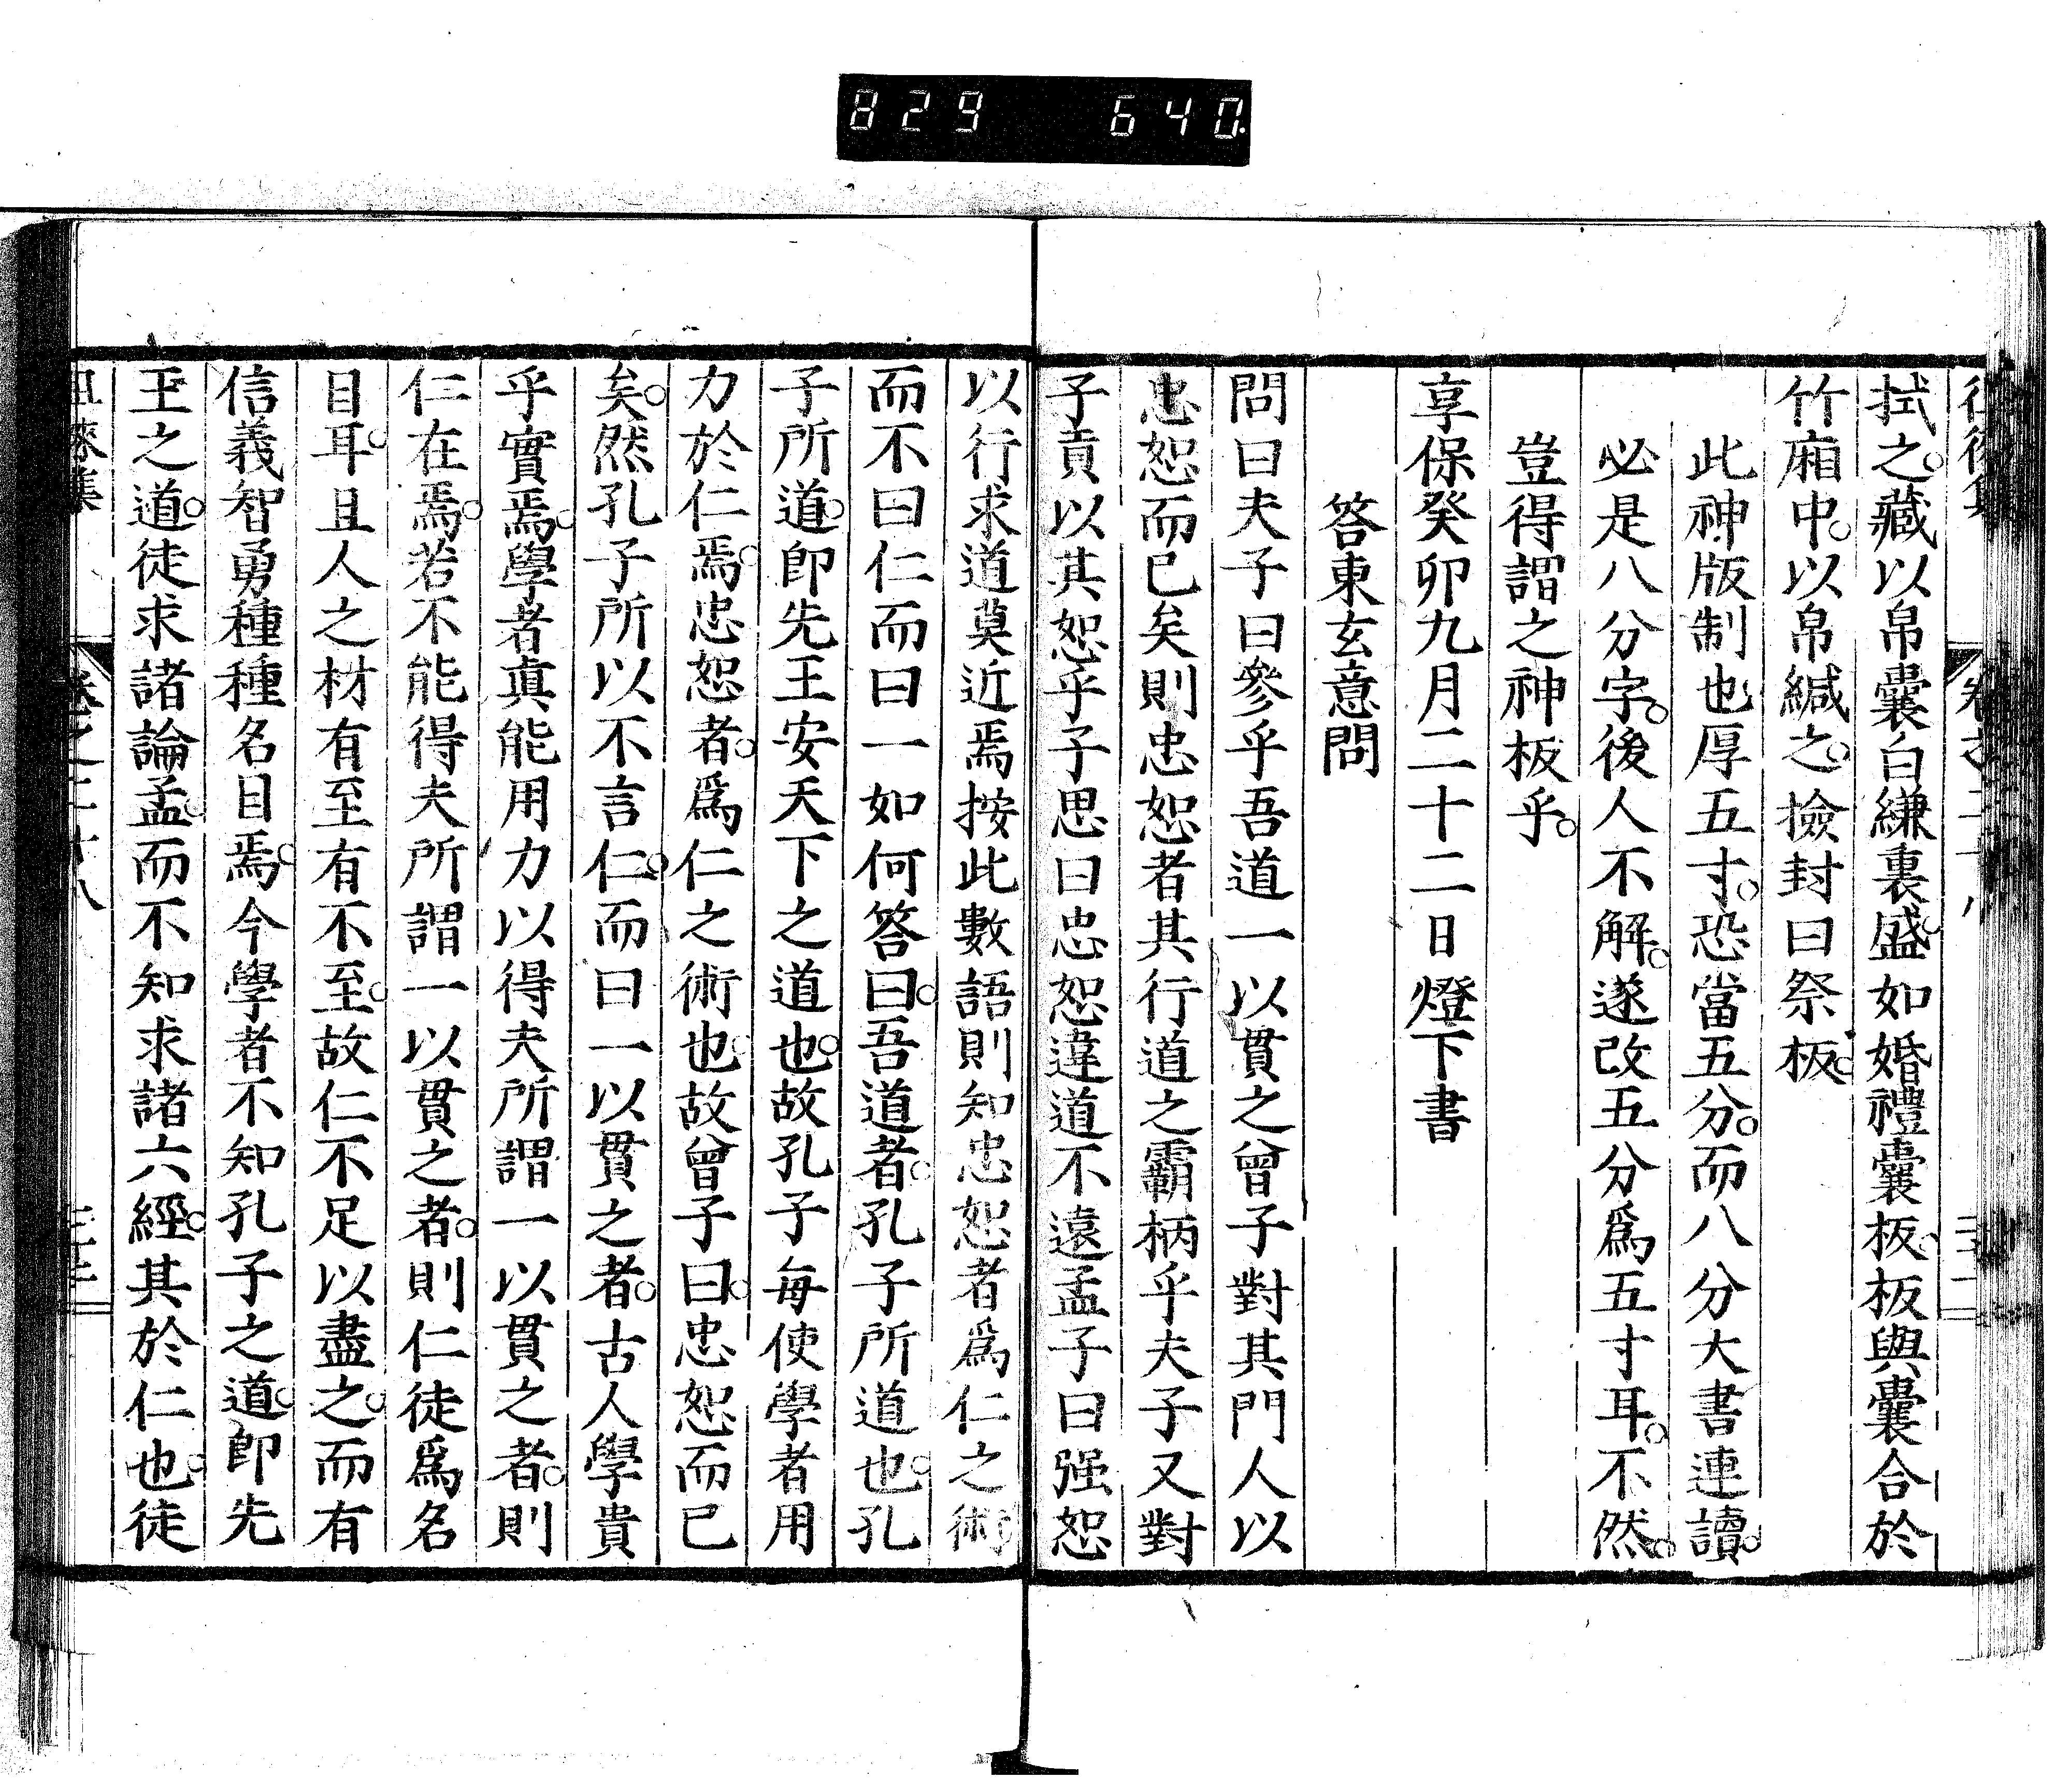 829 640.
拭之。藏以帛囊白縑裏。盛如婚禮囊板。板與囊合於
竹廂中。以帛緘之。撿封曰祭板。
此神版制也厚五寸。恐當五分。而八分大書連讀。
必是八分字。後人不解。遂改五分爲五寸耳。不然。
豈得謂之神板乎。
享保癸卯九月二十二日燈下書
答東玄意問
問曰夫子曰參乎吾道一以貫之曾子對其門人以
忠恕而已矣則忠恕者其行道之霸柄乎夫子又對
子貢以其恕乎子思曰忠恕違道不遠孟子曰强恕
以行求道莫近焉按此數語則知忠恕者爲仁之術
而不曰仁而曰一如何答曰。吾道者。孔子所道也。孔
子所道。卽先王安天下之道也。故孔子每使學者用
力於仁焉。忠恕者。爲仁之術也。故曾子曰。忠恕而已
矣。然孔子所以不言仁。而曰一以貫之者。古人學貴
乎實焉。學者眞能用力以得夫所謂一以貫之者。則
仁在焉。若不能得夫所謂一以貫之者。則仁徒爲名
目耳。且人之材有至有不至。故仁不足以盡之。而有
信義智勇種種名目焉。今學者不知孔子之道。卽先
王之道。徒求諸論孟。而不知求諸六經。其於仁也。徒
徂徠集 卷之二十八